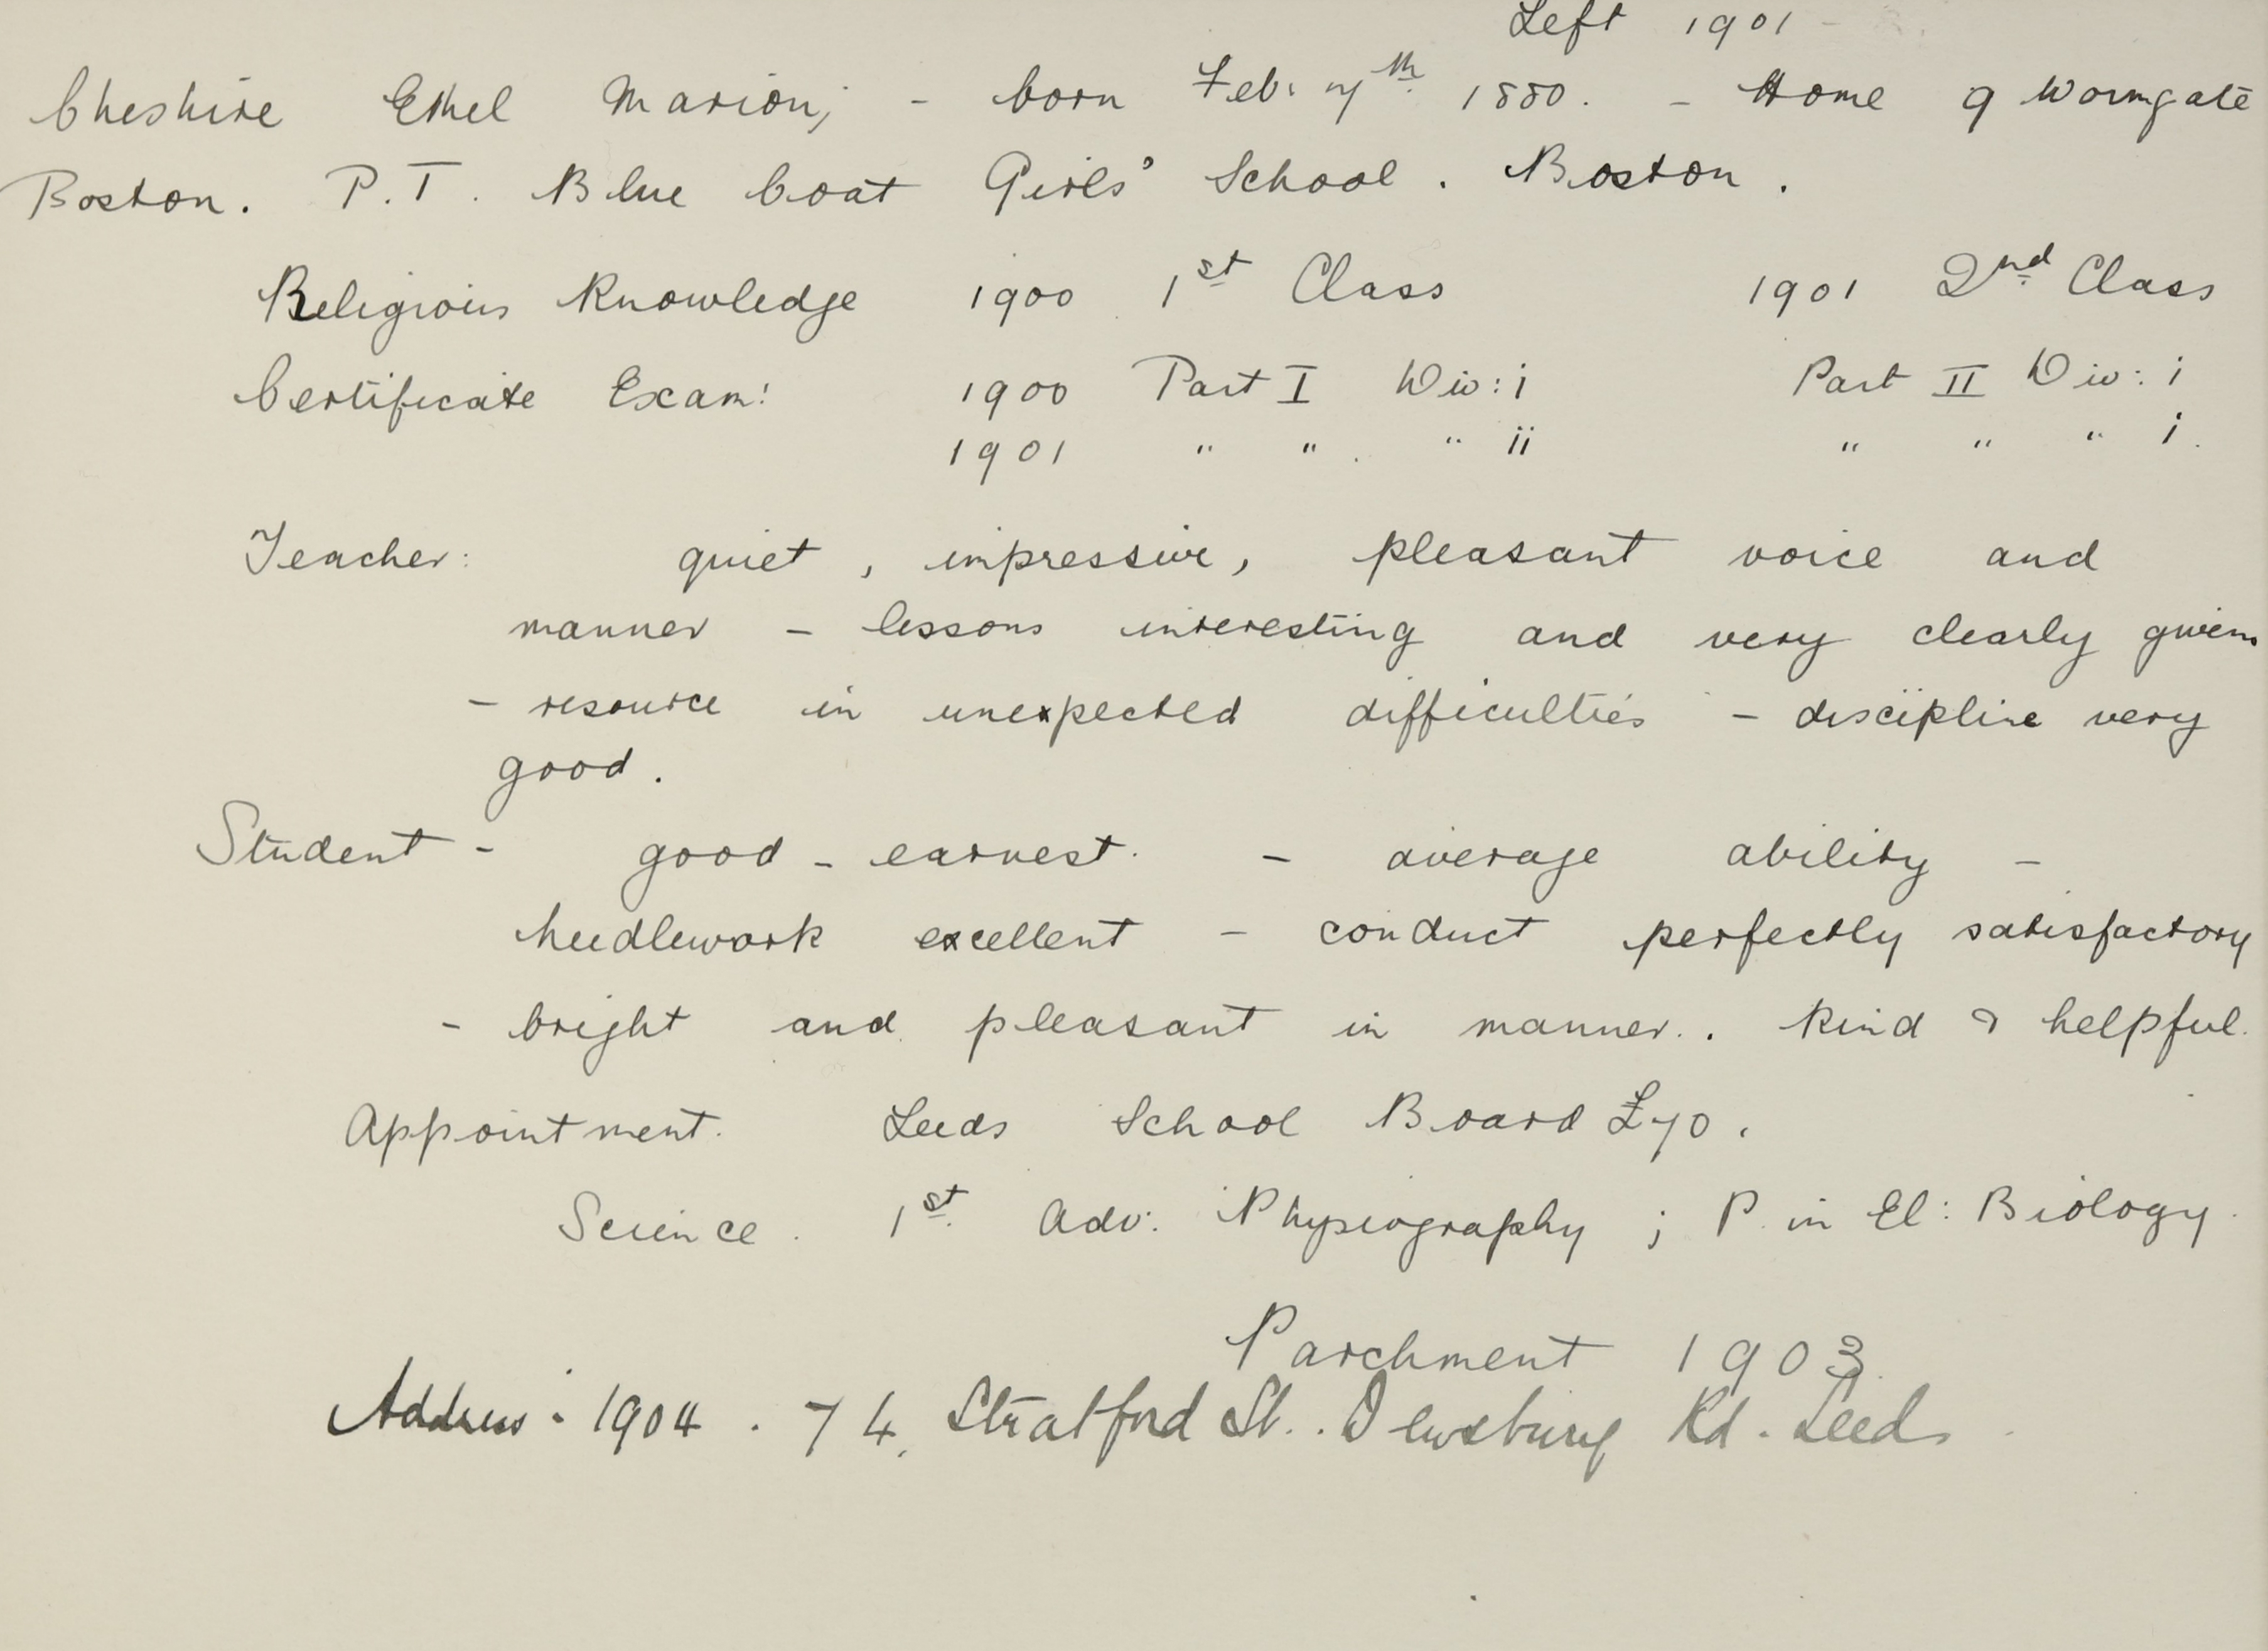 Left 1901 -
Cheshire Ethel Marion; - born Feb. 7th 1880. - Home 9 Wormgate
Boston. P.T. Blue Coat Girls' School. Boston.
Religious Knowledge 1900 1st Class 1901 2nd Class
Certificate Exam: 1900 Part I Div: i Part II Div: i
1901 " " " ii " " " i.
Teacher: quiet, impressive, pleasant voice and
manner - lessons interesting and very clearly given
- resource in unexpected difficulties - discipline very
good.
Student - good - earnest. - average ability -
needlework excellent - conduct perfectly satisfactory
- bright and pleasant in manner.. kind & helpful.
Appointment. Leeds School Board £70.
Science. 1st Adv: Physiography; P. in El: Biology.
Parchment 1903.
Address: 1904. 74, Stratford St.. Dewsbury Rd. Leeds